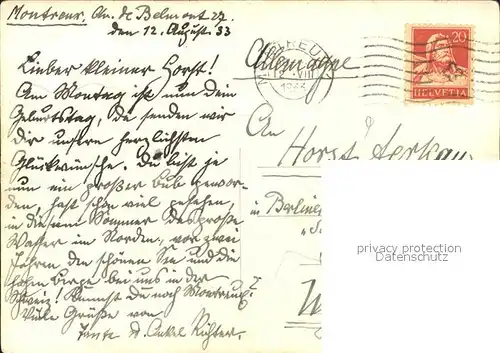 Montreux, Av. de Belmont 27.
den 12. August. 33
Lieber kleiner Horst!
Am Montag ist nun dein
Geburtstag, da senden wir
dir unsern herzlichsten
Glückwünsche. Du bist ja
nun ein großer Bub gewor-
den, hast schon viel gesehen,
in diesem Sommer das große
Wasser im Norden, vor zwei
Jahren den schönen See und die
hohen Berge bei uns in der
Schweiz! Kennst Du noch Montreux?
Viele Grüße von
Tante u. Onkel Richter.
Allemagne
MONTREUX
12. VIII
1933
20
HELVETIA
An
Horst
in Berlin
privacy protection
Datenschutz